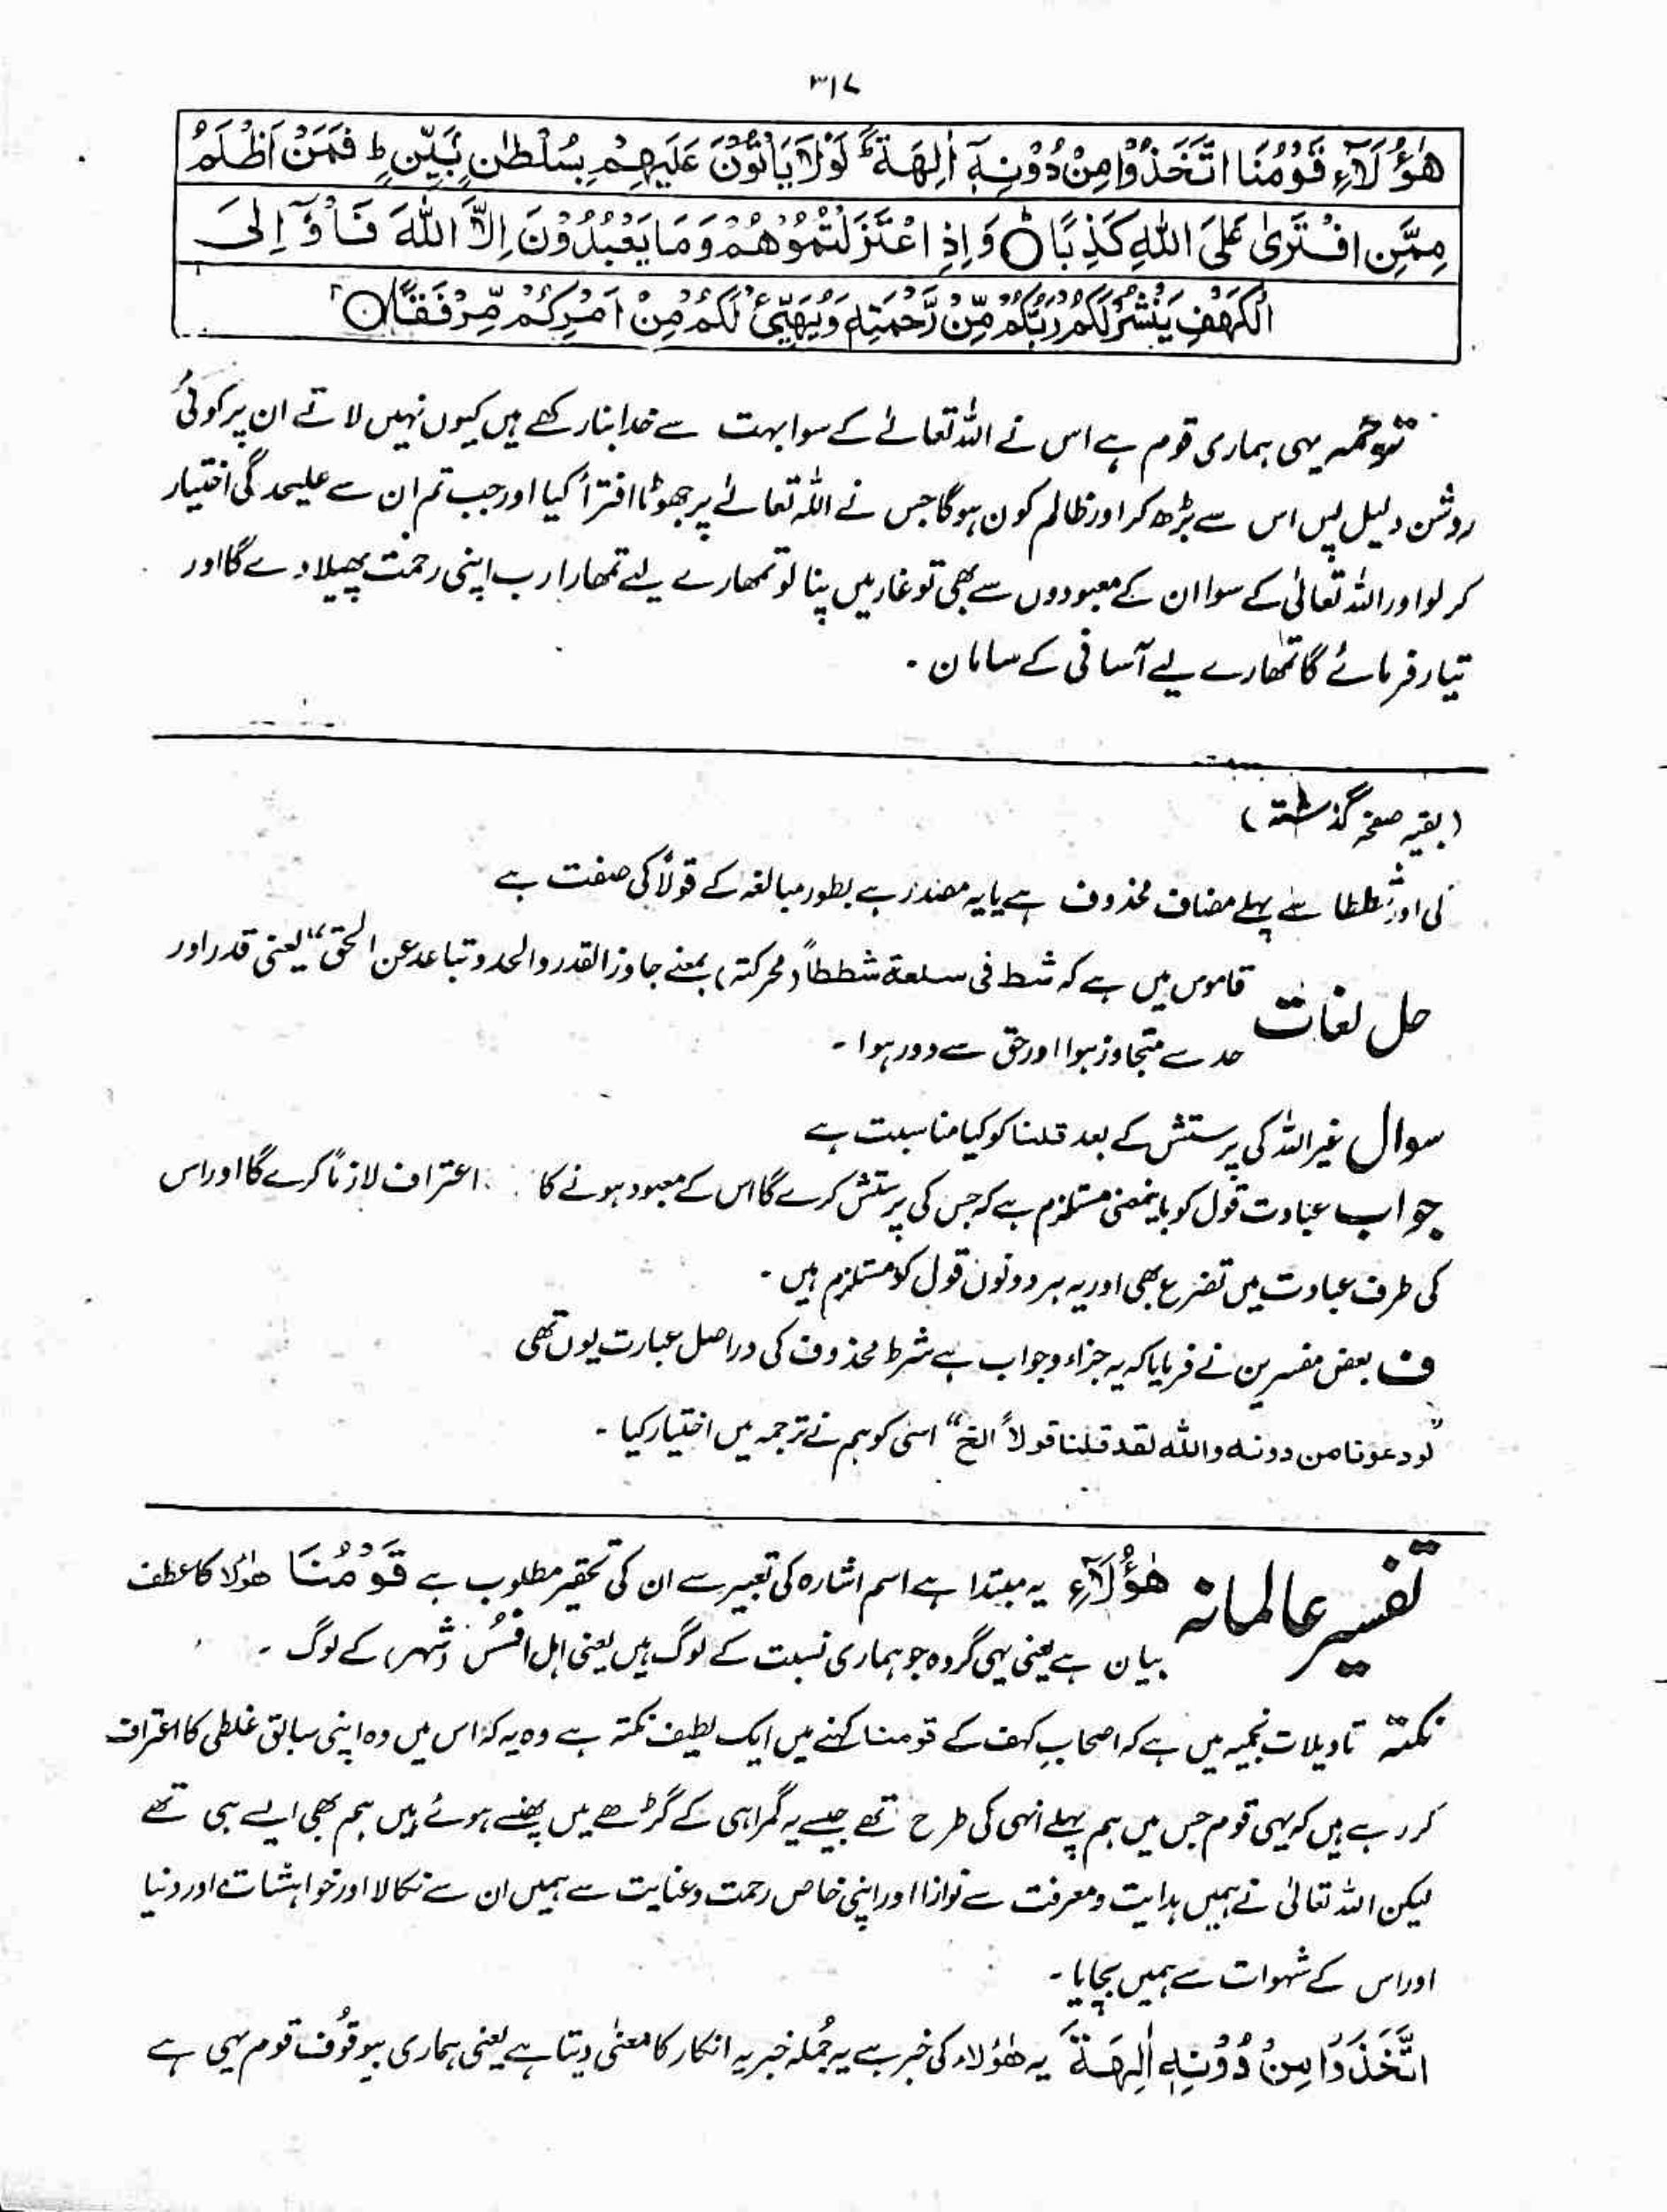 ۳۱۷
هٰۤؤُلَآءِ قَوْمُنَا اتَّخَذُوْا مِنْ دُوْنِهٖۤ اٰلِهَةً ؕ لَوْلَا يَاْتُوْنَ عَلَيْهِمْ بِسُلْطٰنٍ بَيِّنٍ ؕ فَمَنْ اَظْلَمُ
مِمَّنِ افْتَرٰى عَلَى اللّٰهِ كَذِبًا ۝ وَ اِذِ اعْتَزَلْتُمُوْهُمْ وَمَا يَعْبُدُوْنَ اِلَّا اللّٰهَ فَاْوٗۤ اِلَى
الْكَهْفِ يَنْشُرْ لَكُمْ رَبُّكُمْ مِّنْ رَّحْمَتِهٖ وَيُهَيِّئْ لَكُمْ مِنْ اَمْرِكُمْ مِّرْفَقًا ۝
ترجمہ یہی ہماری قوم ہے اس نے اللہ تعالےٰ کے سوا بہت سے خدا بنا رکھے ہیں کیوں نہیں لاتے ان پر کوئی
روشن دلیل پس اس سے بڑھ کر اور ظالم کون ہوگا جس نے اللہ تعالےٰ پر جھوٹا افترأ کیا اور جب تم ان سے علیحدگی اختیار
کر لو اور اللہ تعالیٰ کے سوا ان کے معبودوں سے بھی تو غار میں پنا لو تمھارے لیے تمھارا رب اپنی رحمت پھیلا دے گا اور
تیار فرمائے گا تمھارے لیے آسانی کے سامان ۔
(بقیہ صفحہ گذشتہ)
کی اور شططا سے پہلے مضاف مخذوف ہے یا یہ مصدر ہے بطور مبالغہ کے قولاً کی صفت ہے
حل لغات قاموس میں ہے کہ شط فی سلعة شططاً (محرکتہ) بمعنے جاوز القدر والحد وتباعد عن الحق" یعنی قدر اور
حد سے متجاوز ہوا اور حق سے دور ہوا ۔
سوال غیر اللہ کی پرستش کے بعد قلنا کو کیا مناسبت ہے
جواب عبادت قول کو باینمعنی مستلزم ہے کہ جس کی پرستش کرے گا اس کے معبود ہونے کا اعتراف لازماً کرے گا اور اس
کی طرف عبادت میں تضرع بھی اور یہ ہر دونوں قول کو مستلزم ہیں ۔
ف بعض مفسرین نے فرمایا کہ یہ جزاء و جواب ہے شرط محذوف کی دراصل عبارت یوں تھی
"لو دعونا من دونه والله لقد قلنا قولاً الخ" اسی کو ہم نے ترجمہ میں اختیار کیا ۔
تفسیر عالمانہ هٰۤؤُلَآءِ یہ مبتدا ہے اسم اشارہ کی تعبیر سے ان کی تحقیر مطلوب ہے قَوْمُنَا ھؤلا کا عطف
بیان ہے یعنی یہی گروہ جو ہماری نسبت کے لوگ ہیں یعنی اہل افسُس (شہر) کے لوگ ۔
نکتہ تاویلات نجمیہ میں ہے کہ اصحابِ کہف کے قومنا کہنے میں ایک لطیف نکتہ ہے وہ یہ کہ اس میں وہ اپنی سابق غلطی کا اعتراف
کر رہے ہیں کہ یہی قوم جس میں ہم پہلے انہی کی طرح تھے جیسے یہ گمراہی کے گڑھے میں پھنسے ہوئے ہیں ہم بھی ایسے ہی تھے
لیکن اللہ تعالیٰ نے ہمیں ہدایت و معرفت سے نوازا اور اپنی خاص رحمت و عنایت سے ہمیں ان سے نکالا اور خواہشات اور دنیا
اور اس کے شہوات سے ہمیں بچایا ۔
اتَّخَذُوْا مِنْ دُوْنِهٖ اٰلِهَةً یہ هٰؤلاء کی خبر ہے یہ جُملہ خبریہ انکار کا معنیٰ دیتا ہے یعنی ہماری بیوقوُف قوم یہی ہے